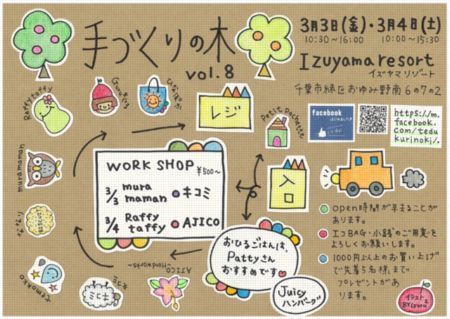 手づくりの木
vol.8
3月3日(金)・3月4日(土)
10:30~16:00 10:00~15:30
Izuyama resort
イズヤマリゾート
千葉市緑区おゆみ野南6の7の2
facebook
https://m.
facebook.
com/tedu
kurinoki/.
Raffy taffy
Gumin's
muramaman
temoako
Petit Pochette
レジ
入口
WORK SHOP
¥500~
3/3 mura maman → キコミ
3/4 Raffy taffy → AJICO
AJICO
おひるごはんは、
Pattyさん
おすすめです♡
Juicy
ハンバーグ
open時間が早まることが
あります。
エコBAG・小銭のご用意を
よろしくお願いします。
1000円以上のお買い上げ
で先着5名様まで
プレゼントがあ
ります。
イラスト